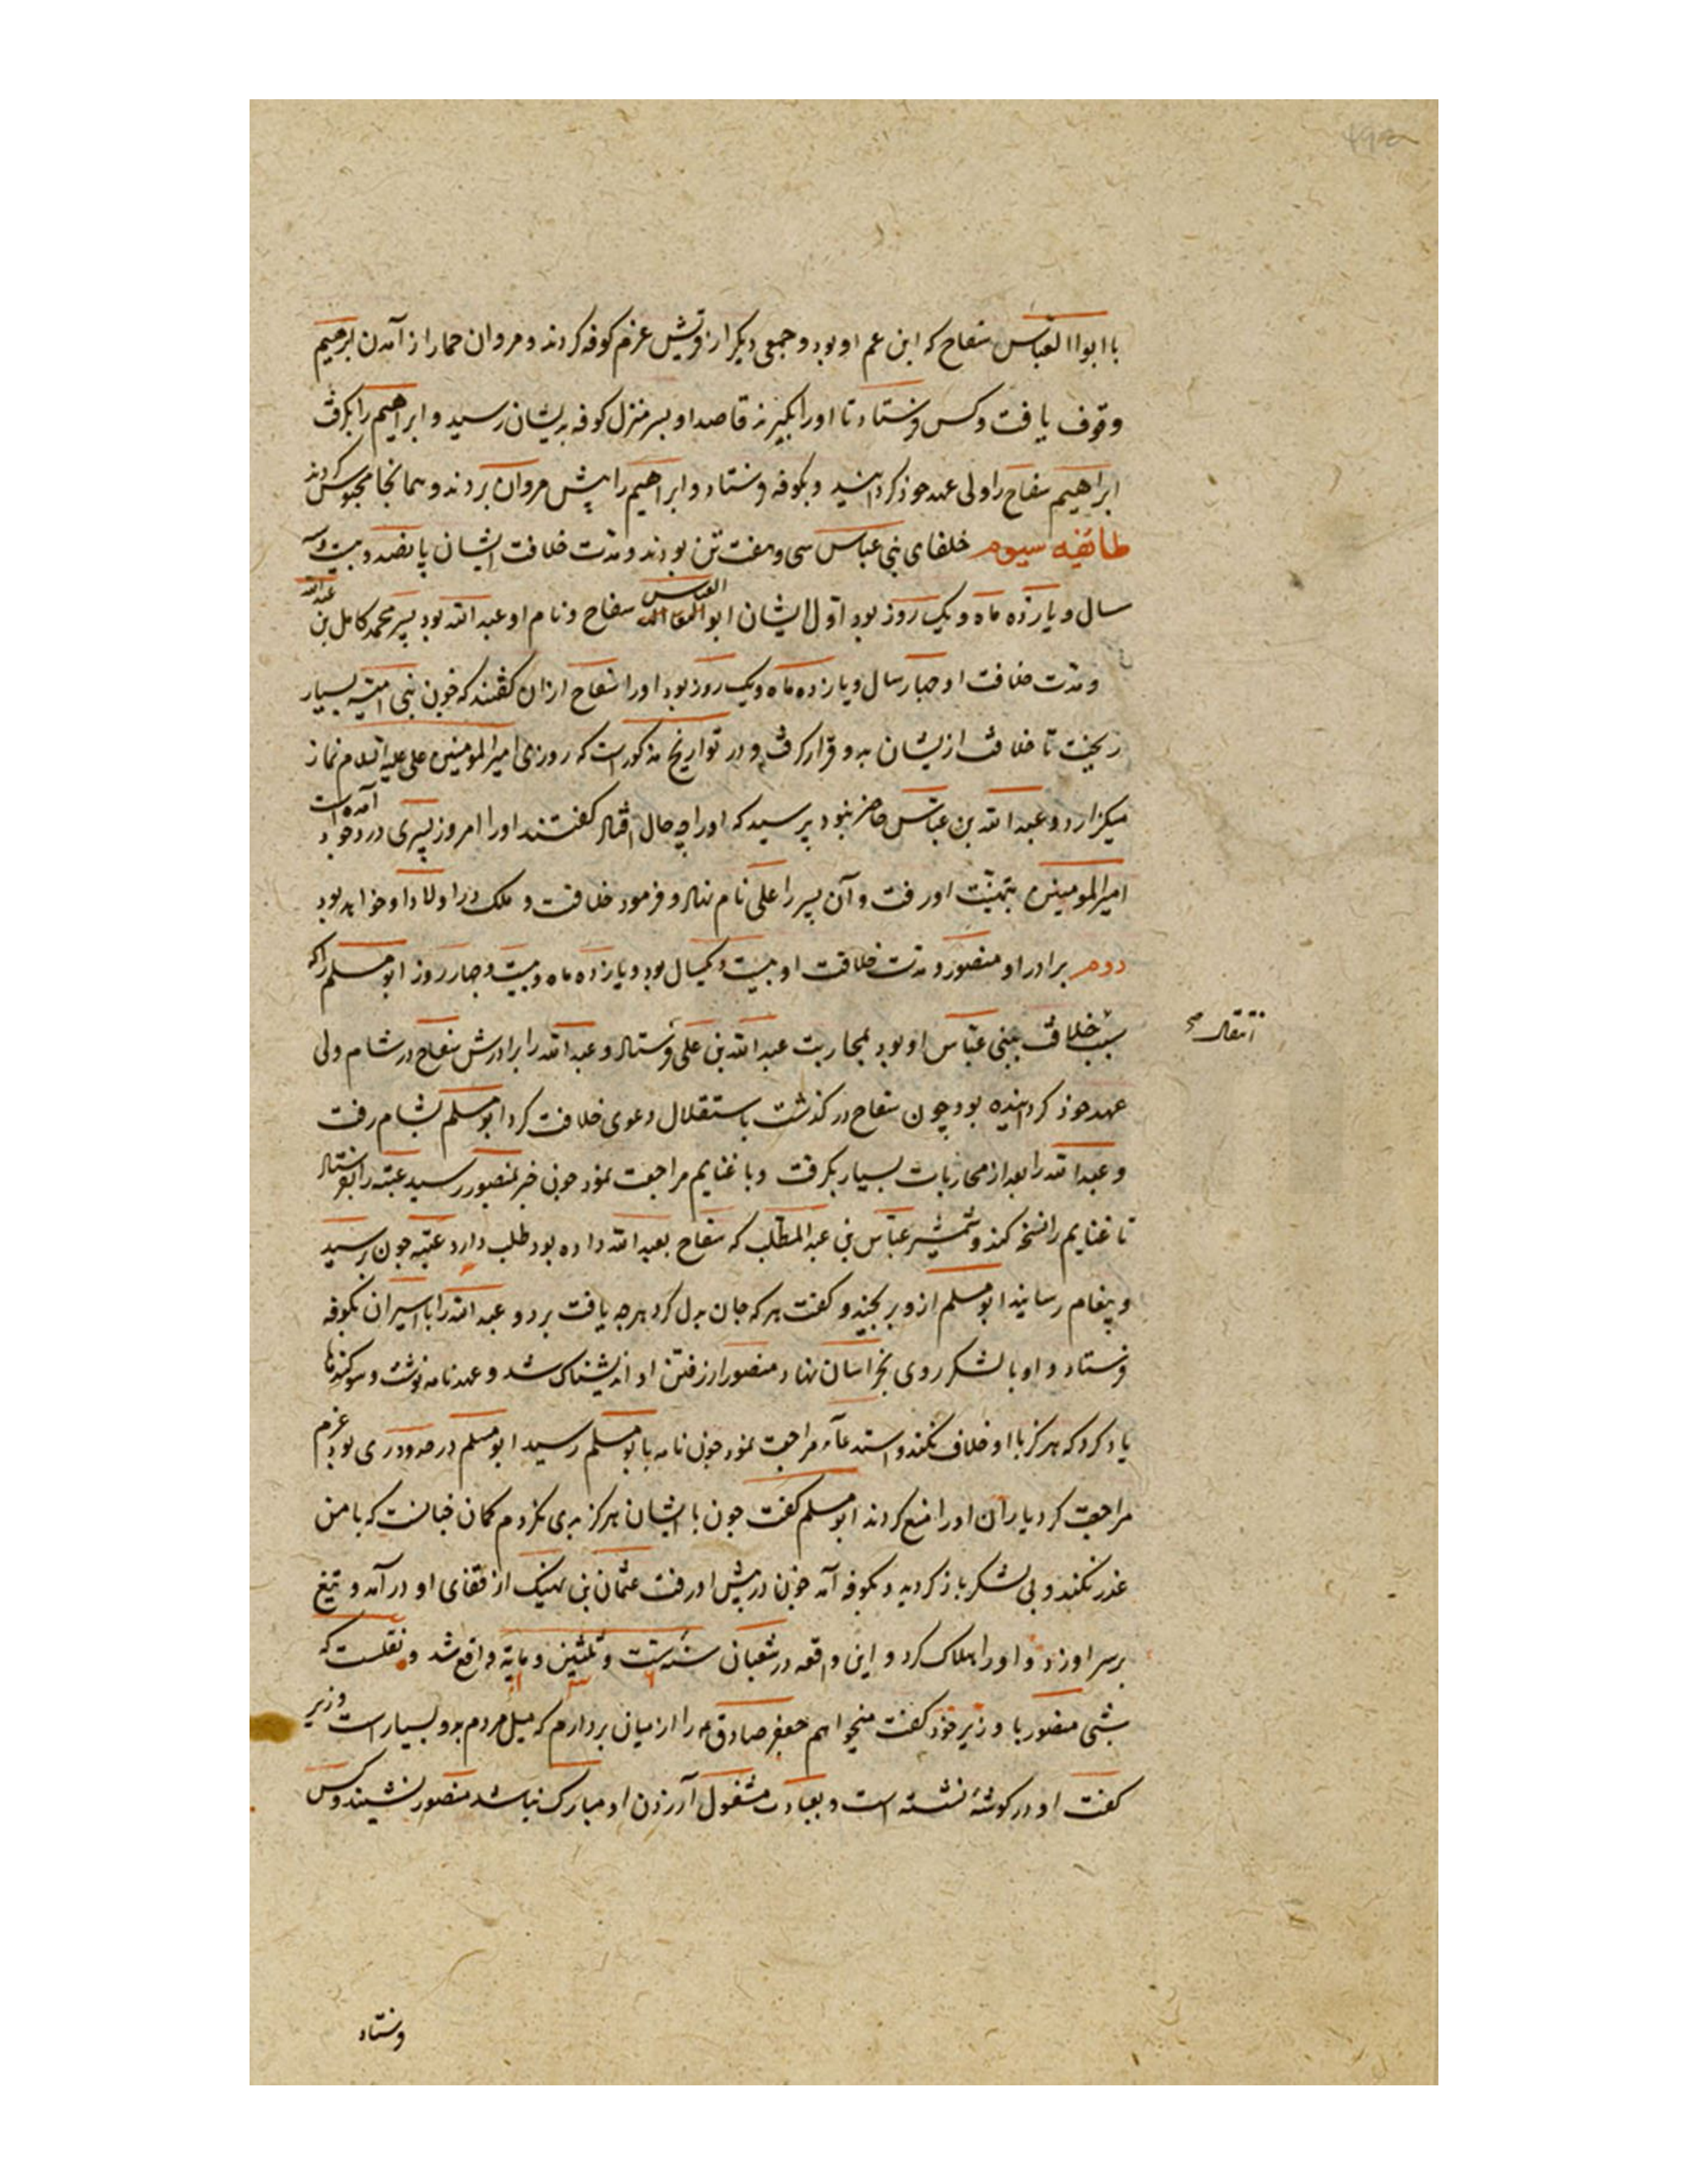 با ابواالعباس سفاح که ابن عم او بود و جمعی دیکر از قریش عزم کوفه کردند و مروان حمار از آمدن ابرهیم
وقوف یافت و کس فرستاد تا او را بکیرند قاصد او بسر منزل کوفه بدیشان رسید و ابراهیم را بکرفت
ابراهیم سفاح را ولی عهد خوذ کردانید و بکوفه فرستاد و ابراهیم را پیش مروان بردند و همانجا محبوس کردند
طائفه سیوم خلفای بنی عباس سی و هفت تن بودند و مدت خلافت ایشان پانصد و بیت و سه
سال و یازده ماه و یک روز بود اول ایشان ابوالعباس سفاح و نام او عبدالله بود پسر محمد کامل بن عبدالله
و مدت خلافت او جهار سال و یازده ماه و یک روز بود او را سفاح ازان کفتند که خون بنی امیه بسیار
ریخت تا خلافت ازیشان بدو قرار کرفت و در تواریخ مذکورست که روزی امیرالمومنین علی علیه السلام نماز
میکزارد و عبدالله بن عباس حاضر نبود پرسید که او را چه حال افتاد کفتند او را امروز پسری در وجود آمده است
امیرالمومنین بتهنیت او رفت و آن پسر را علی نام نهاد و فرمود خلافت و ملک در اولاد او خواهد بود
دوم برادر او منصور و مدت خلافت او بیست و یکسال بود و یازده ماه و بیت و جهار روز ابومسلم را که
سبب خلافت ببنی عباس او بود بمحاربت عبدالله بن علی فرستاد و عبدالله را برادرش سفاح در شام ولی
انتقال صح
عهد خوذ کردانیده بود چون سفاح در کذشت باستقلال دعوی خلافت کرد ابومسلم بشام رفت
و عبدالله را بعد از محاربات بسیار بکرفت و با غنایم مراجعت نمود جون خبر بمنصور رسید عتبه را بفرستاد
تا غنایم را نسخه کند و شمشیر عباس بن عبدالمطلب که سفاح بعبدالله داده بود طلب دارد عتبه جون برسید
و پیغام رسانید ابومسلم ازو برنجید و کفت هر که جان بدل کرد هرچه یافت برد و عبدالله را با اسیران بکوفه
فرستاد و او با لشکر روی بخراسان نهاد منصور از رفتن او اندیشناک شد و عهدنامه نوشت و سوکندها
یاد کرد که هرکز با او خلاف نکند و استدعاء مراجعت نمود جون نامه بابومسلم رسید ابومسلم در حدود ری بود عزم
مراجعت کرد یاران او را منع کردند ابومسلم کفت جون با ایشان هرکز بدی نکردم کمان جنانست که با من
غدر نکند و بی لشکر باز کردید و بکوفه آمد جون در پیش او رفت عثمان بن نهیک از قفای او در آمد و تیغ
بر سر او زد و او را هلاک کرد و این واقعه در شعبان سنه ست و ثلثین و مایة واقع شد و نقلست که
شبی منصور با وزیر خوذ کفت میخواهم جعفر صادق را از میان بردارم که میل مردم بدو بسیار است وزیر
کفت او در کوشهٔ نشسته است و بعبادت مشغول آزردن او مبارک نباشد منصور نشنید و کس
فرستاد